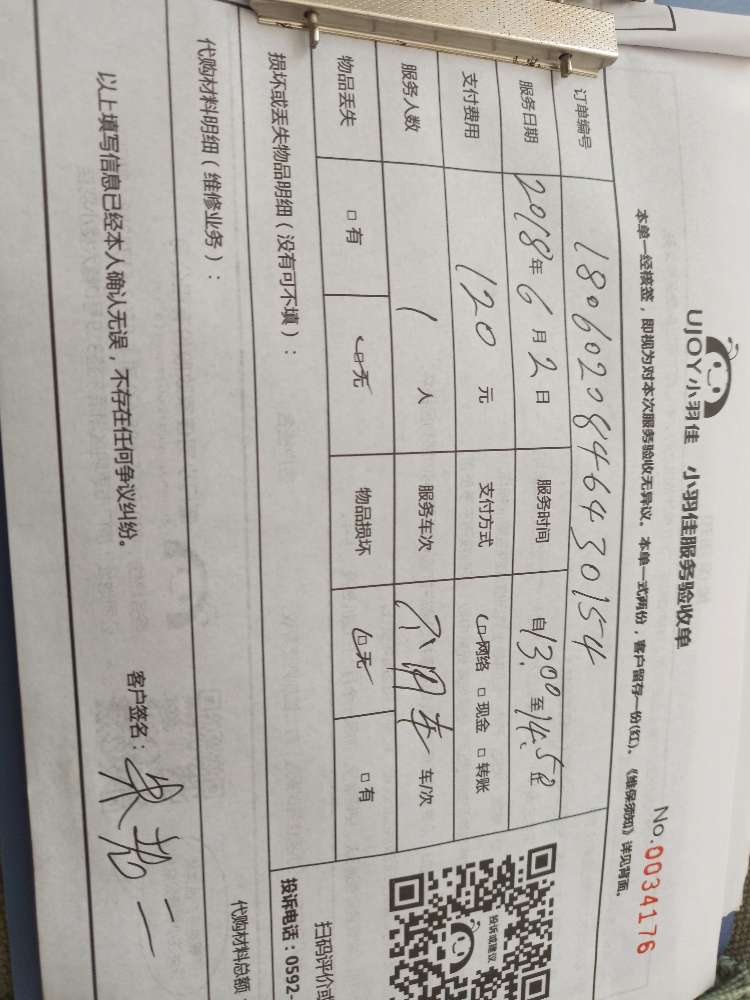 UJOY小羽佳 小羽佳服务验收单
No.0034176
本单一经接签，即视为对本次服务验收无异议。本单一式两份，客户留存一份(红)。《维保须知》详见背面。
订单编号 180602084643030154
服务日期 2018年6月2日 服务时间 自13:00至14:50止
支付费用 120元 支付方式 网络 □现金 □转账
服务人数 1人 服务车次 不用车 车/次
物品丢失 □有 □无 物品损坏 □无 □有
损坏或丢失物品明细（没有可不填）：
投诉或建议
扫码评价或
投诉电话：0592-
代购材料明细（维修业务）：
代购材料总额
以上填写信息已经本人确认无误，不存在任何争议纠纷。
客户签名：